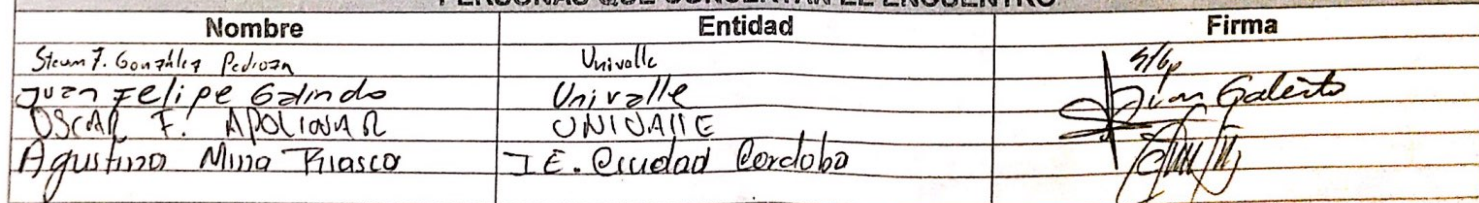 PERSONAS QUE CONCERTAN EL ENCUENTRO
Nombre Entidad Firma
F. González Pedroza Univalle
Juan Felipe Galindo Univalle Juan Galindo
OSCAR F. APOLINAR UNIVALLE
Agustina Mina Riascos I.E. Ciudad Cordoba